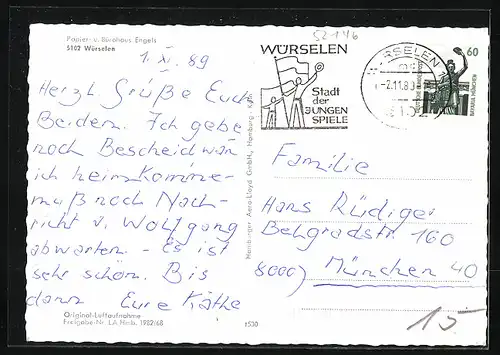 Papier- u. Bürohaus Engels
5102 Würselen
1. XI. 89
Herzl. Grüße Euch
Beiden. Ich gebe
noch Bescheid wan
ich heimkomme.
muß noch Nach-
richt v. Wolfgang
abwarten. - Es ist
sehr schön. Bis
dann Eure Käthe
Original-Luftaufnahme
Freigabe-Nr. LA Hmb. 1982/68
1530
Hamburger Aero-Lloyd GmbH., Hamburg
52146
WÜRSELEN
Stadt
der
JUNGEN
SPIELE
WÜRSELEN 1
-2.11.89
5102
60
Familie
Hans Rüdiger
Belgradstr 160
8000) München 40
15